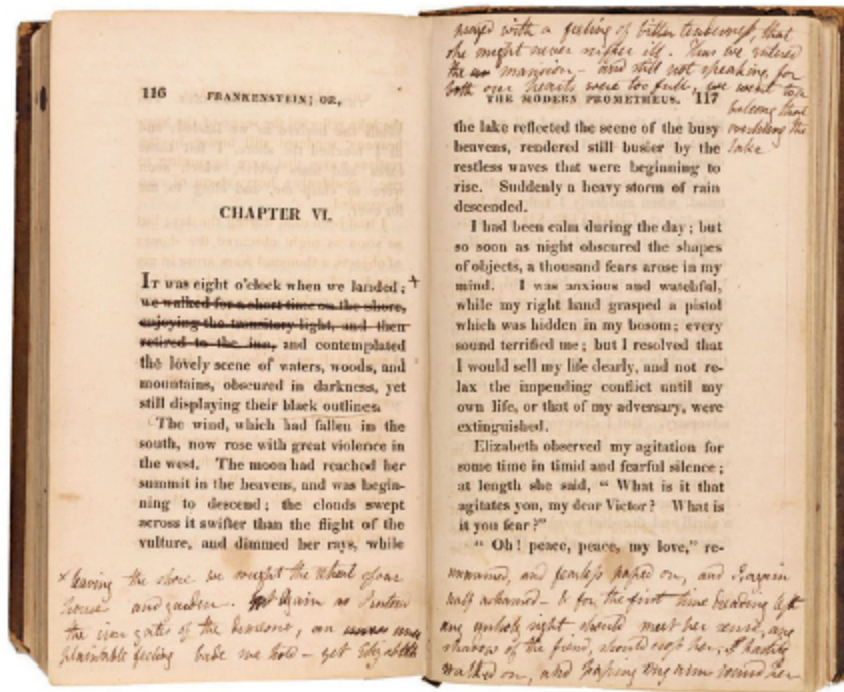 116 FRANKENSTEIN; OR,
CHAPTER VI.
IT was eight o'clock when we landed; +
we walked for a short time on the shore,
enjoying the transitory light, and then
retired to the inn, and contemplated
the lovely scene of waters, woods, and
mountains, obscured in darkness, yet
still displaying their black outlines.
The wind, which had fallen in the
south, now rose with great violence in
the west. The moon had reached her
summit in the heavens, and was begin-
ning to descend; the clouds swept
across it swifter than the flight of the
vulture, and dimmed her rays, while
x leaving the shore we sought the retreat of our
house and garden. again as I entered
the iron gates of the demesne, an
feeling bade me hold – yet Elizabeth
prayed with a feeling of bitter tenderness, that
she might never suffer ill. Thus we entered
the mansion – and still not speaking, for
both our hearts were too full, we went to a
balcony that
overhung the
lake
THE MODERN PROMETHEUS. 117
the lake reflected the scene of the busy
heavens, rendered still busier by the
restless waves that were beginning to
rise. Suddenly a heavy storm of rain
descended.
I had been calm during the day; but
so soon as night obscured the shapes
of objects, a thousand fears arose in my
mind. I was anxious and watchful,
while my right hand grasped a pistol
which was hidden in my bosom; every
sound terrified me; but I resolved that
I would sell my life dearly, and not re-
lax the impending conflict until my
own life, or that of my adversary, were
extinguished.
Elizabeth observed my agitation for
some time in timid and fearful silence;
at length she said, “ What is it that
agitates you, my dear Victor? What is
it you fear?”
“ Oh! peace, peace, my love,” re-
and fearless passed on, and I again
half ashamed – & for the first time dreading lest
any unholy sight should meet her sense, any
shadow of the fiend, should cross her; I hastily
walked on, and my arm round her